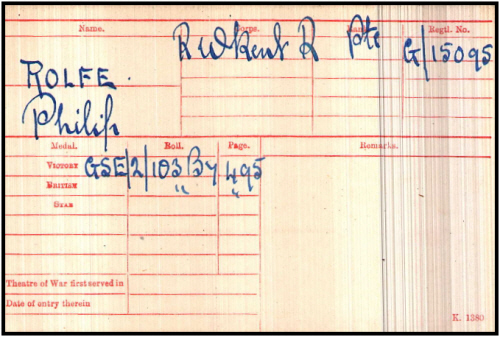 Name. Corps. Rank. Regtl. No.
R W Kent R Pte G/15095
ROLFE.
Philip
Medal. Roll. Page. Remarks.
VICTORY GSE/2/103 B4 495
BRITISH " "
STAR
Theatre of War first served in
Date of entry therein
K. 1380